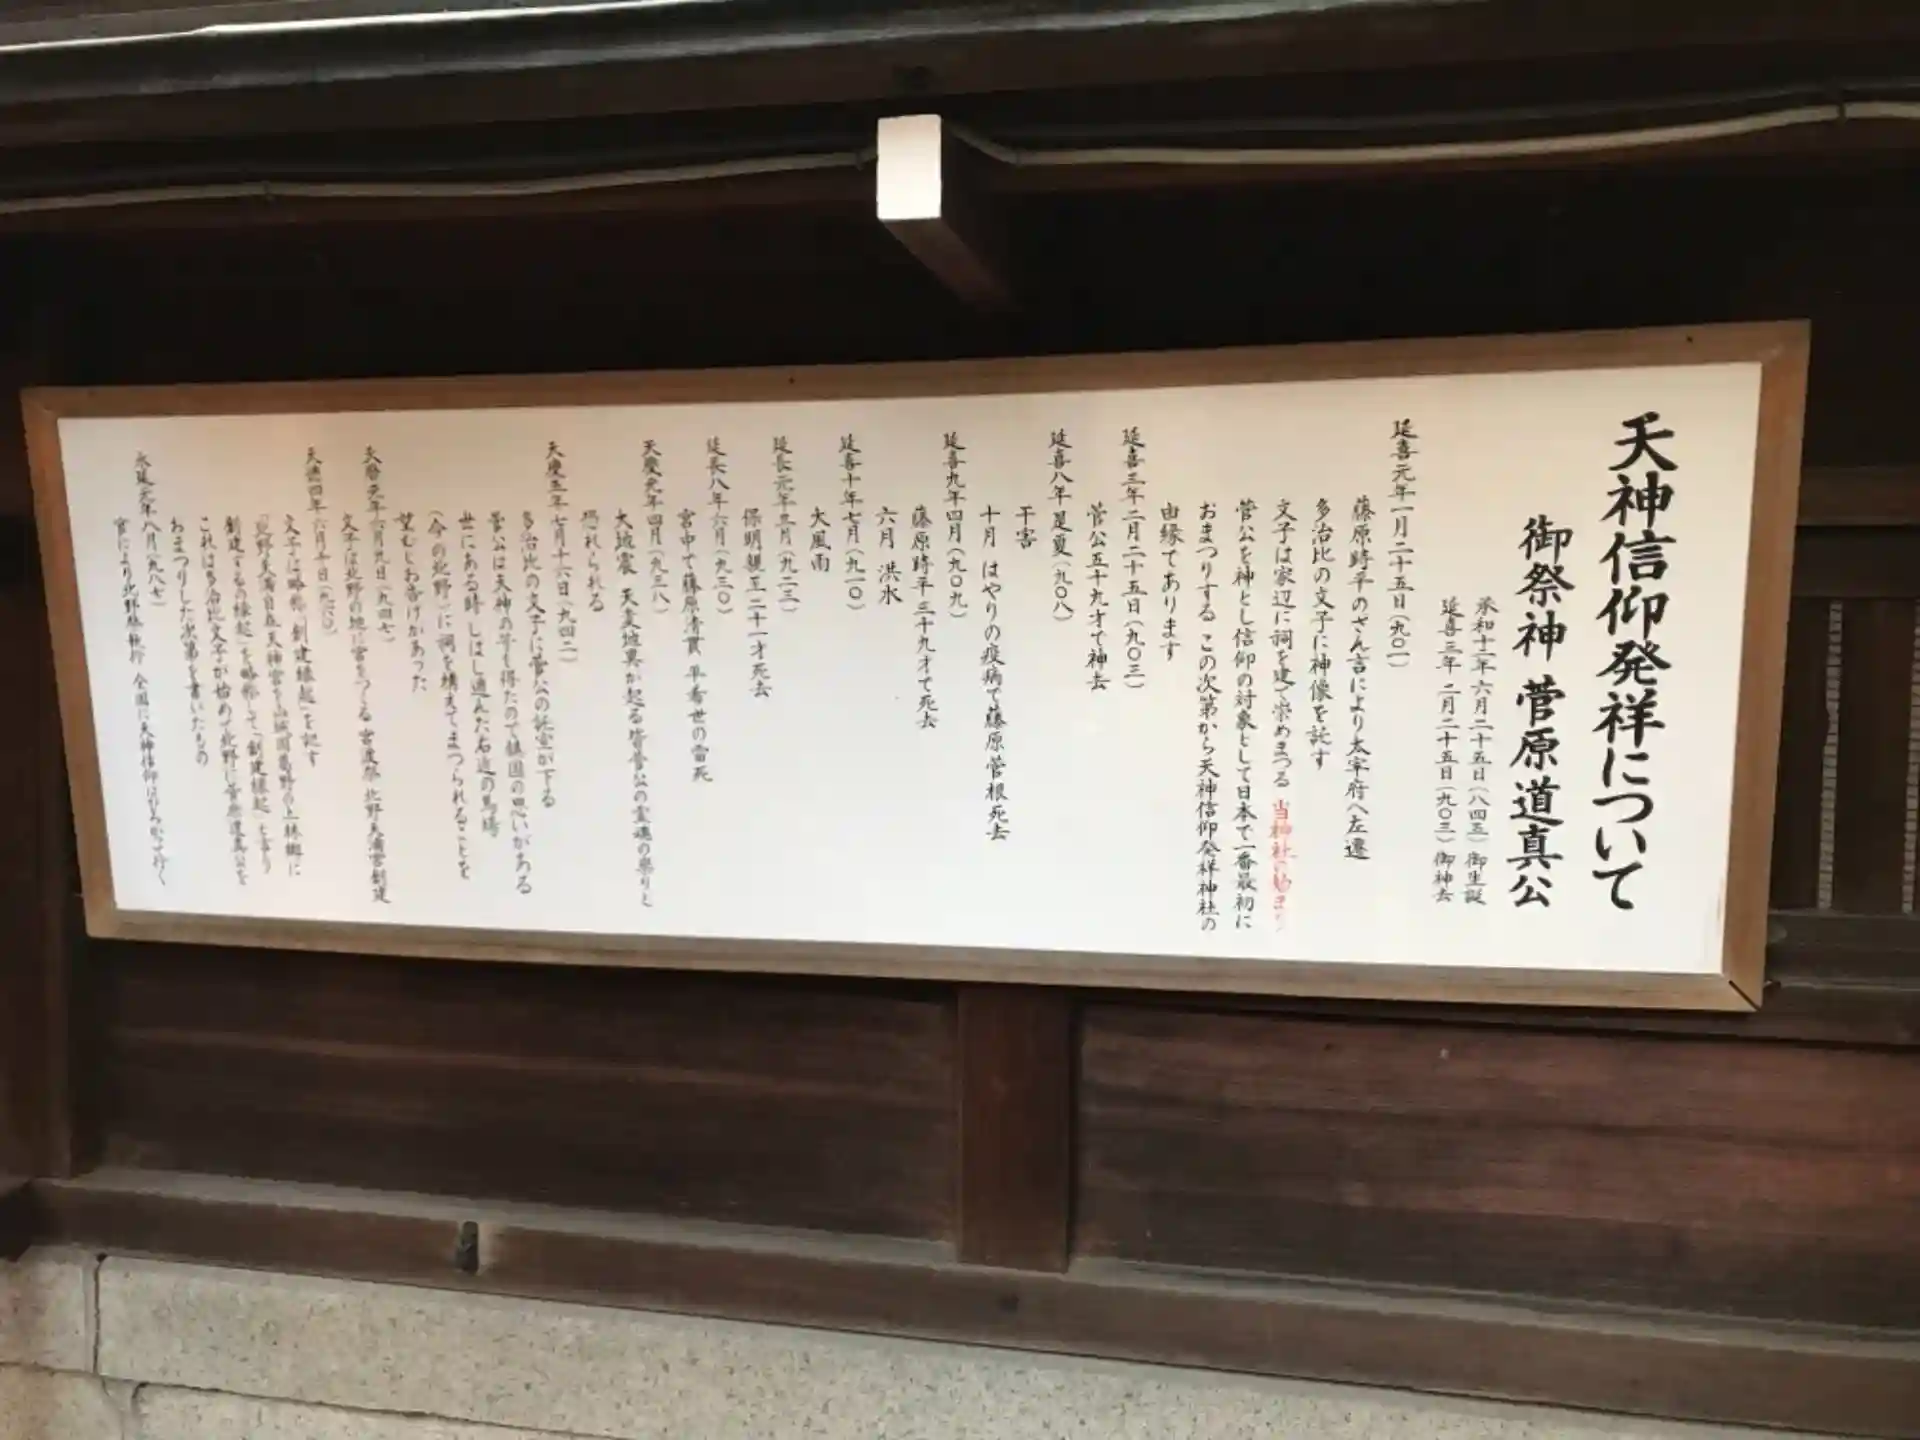 天神信仰発祥について
御祭神 菅原道真公
承和十二年 六月二十五日(八四五)御生誕
延喜三年 二月二十五日(九〇三)御神去
延喜元年一月二十五日(九〇一)
藤原時平のざん言により太宰府へ左遷
多治比の文子に神像を託す
文子は家辺に祠を建て崇めまつる 当神社の始まり
菅公を神とし信仰の対象として日本で一番最初に
おまつりする この次第から天神信仰発祥神社の
由縁であります
延喜三年二月二十五日(九〇三)
菅公五十九才で神去
延喜八年 是夏(九〇八)
干害
十月 はやりの疫病で藤原菅根死去
延喜九年四月(九〇九)
藤原時平三十九才で死去
六月 洪水
延喜十年七月(九一〇)
大風雨
延長元年三月(九二三)
保明親王二十一才死去
延長八年六月(九三〇)
宮中で藤原清貫 平希世の雷死
天慶元年四月(九三八)
大地震 天変地異が起る皆菅公の霊魂の祟りと
恐れられる
天慶五年七月十六日(九四二)
多治比の文子に菅公の託宣が下る
菅公は天神の号を得たので鎮国の思いがある
世にある時 しばし遊んだ右近の馬場
(今の北野)に祠を構えてまつられることを
望むとお告げがあった
天暦元年六月九日(九四七)
文子は北野の地に宮をつくる 宮渡祭 北野天満宮創建
天徳四年六月十日(九六〇)
文子は略称「創建縁起」を記す
「北野天満自在天神宮を山城国葛野の上林郷に
創建するの縁起」を略称して「創建縁起」と言う
これは多治比文子が始めて北野に菅原道真公を
おまつりした次第を書いたもの
永延元年八月(九八七)
官により北野祭執行 全国に天神信仰はひろがって行く